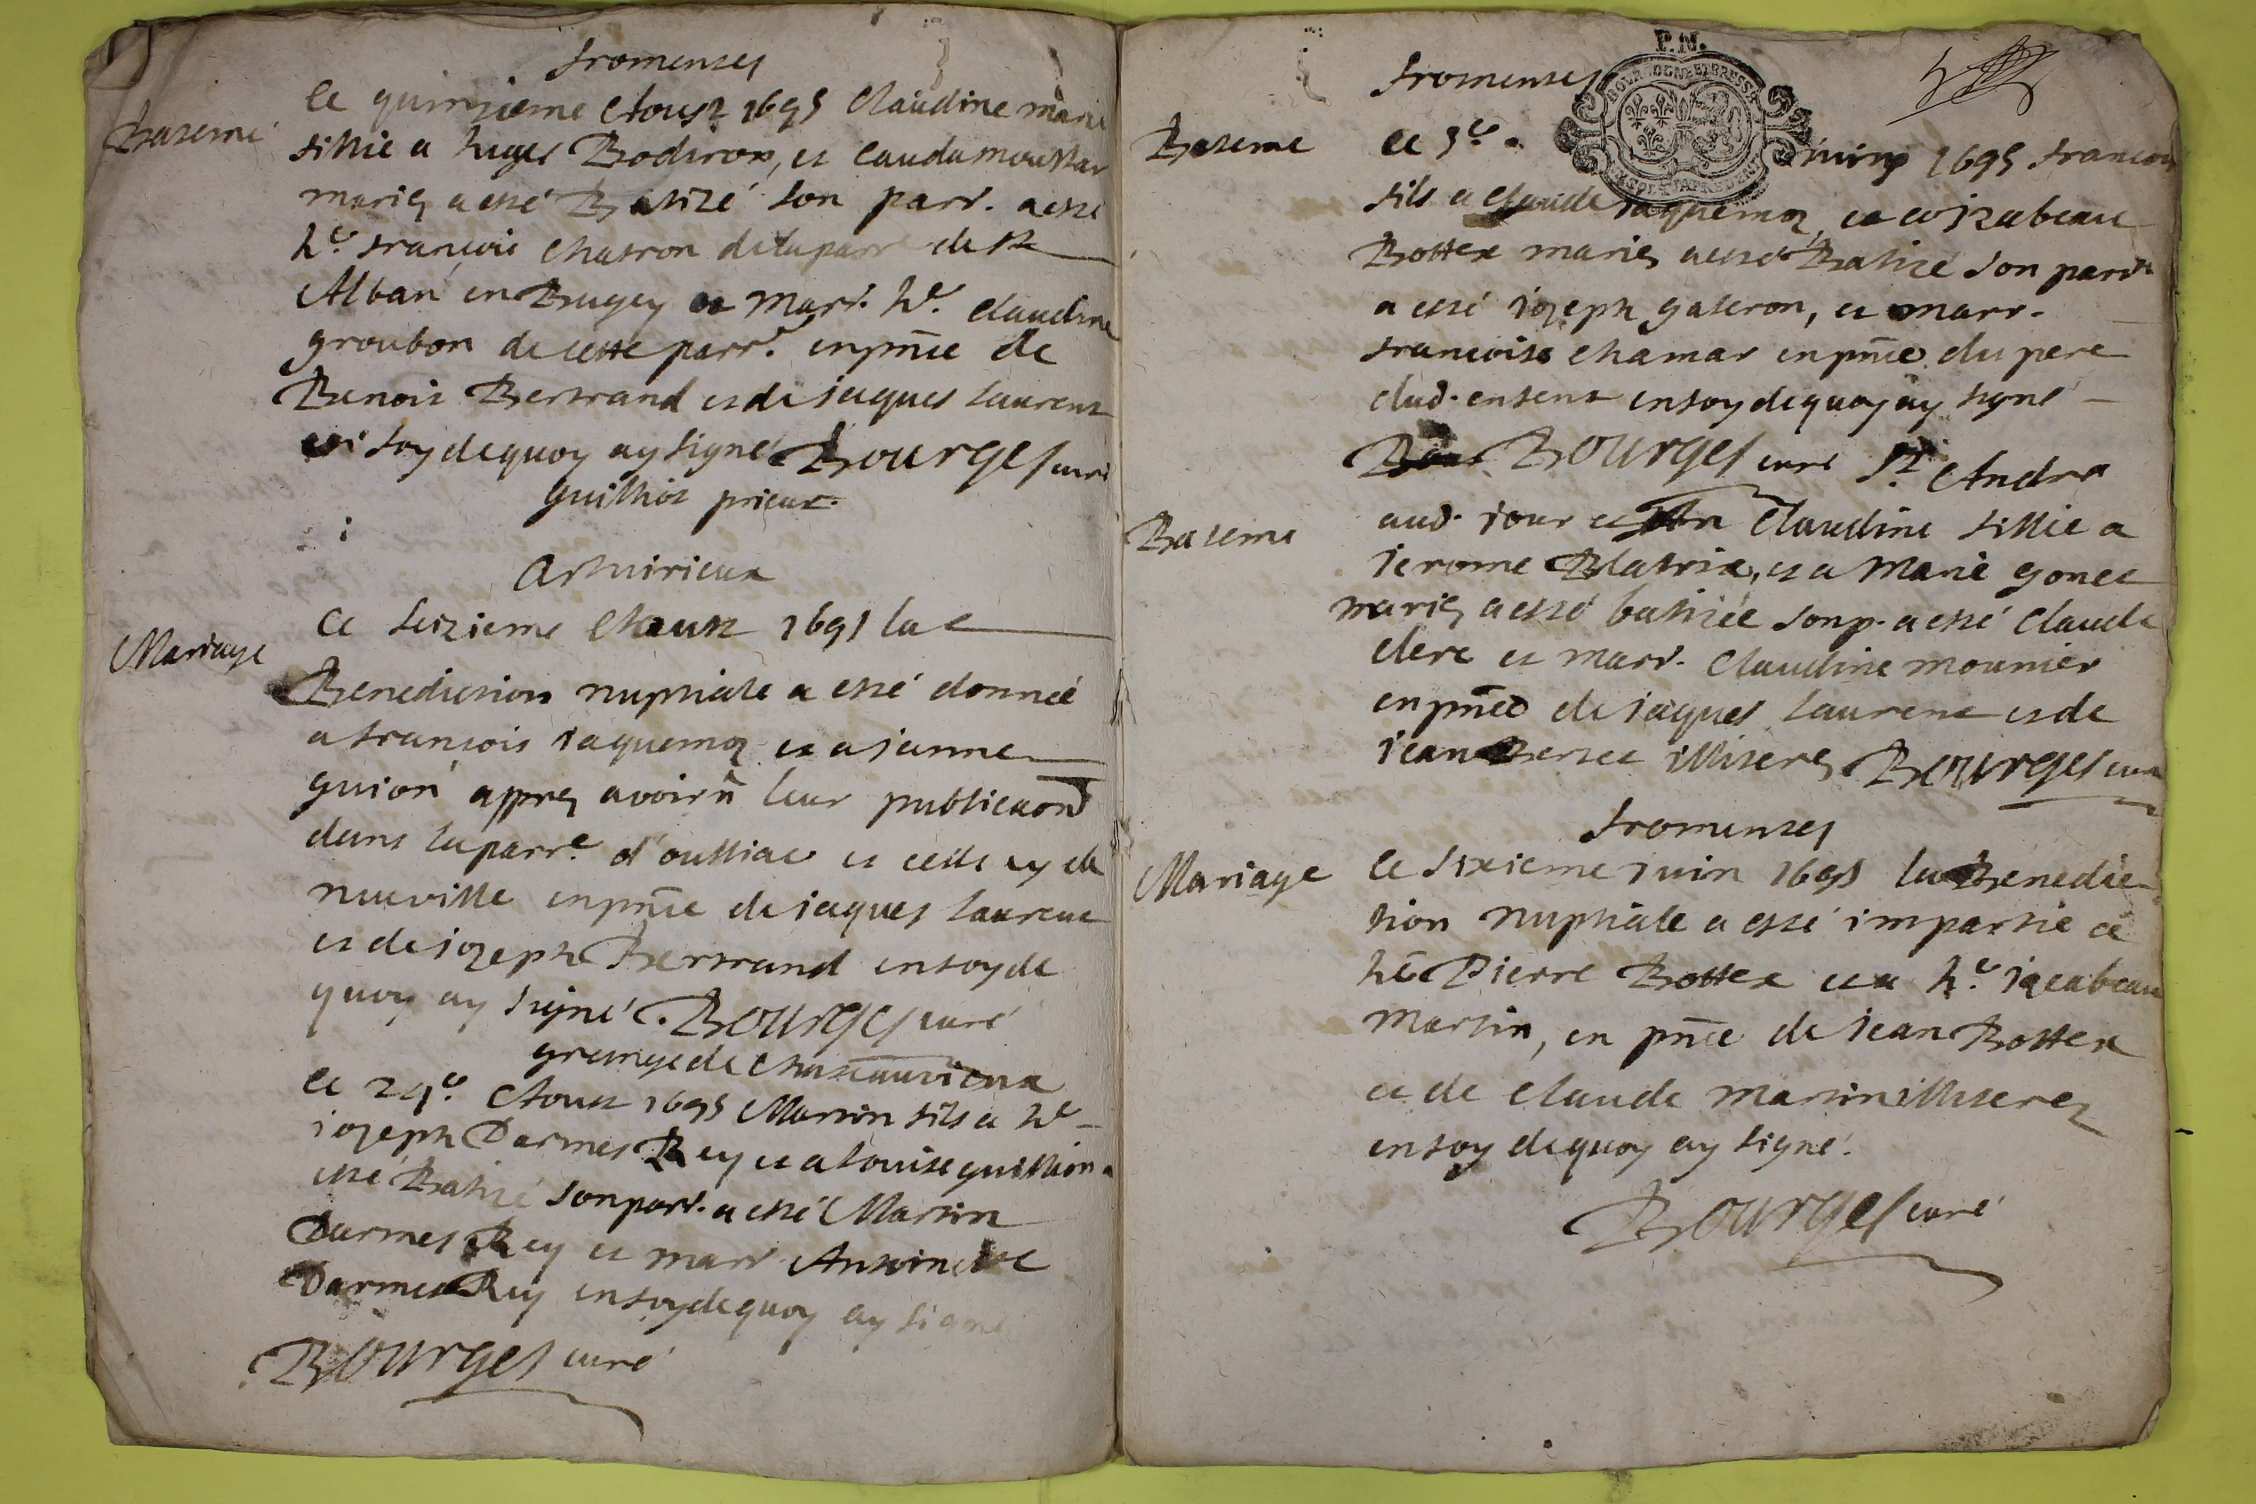 fromentes
Bateme
Le quinzieme Aoust 1695 Claudine marie
fillie a huges Bodiron, et Clauda moustar
mariez a esté Batizé son parr. a esté
h.e françois chatron de la parr.e de st
Alban en Bugey et marr. h.e Claudine
groubon de cette parr.e en pnce de
Benoit Bertrand et de jaques Laurent
en foy de quoy ay signé Bourges curé
guilliot prieur.
Arthuirieux
Mariage
Ce seizieme Aoust 1695 la
Benediction nuptiale a esté donnée
a françois jaquemoz et a janne
guion appres avoir leur publicaon
dans la parr.e d'oussiac et celle cy de
neuville en pnce de jaques Laurent
et de jozeph Bertrand en foy de
quoy ay signé. Bourges curé
grange de Chatauvieux
Le 24.e Aoust 1695 Martin fils a h.e
jozeph Darmes Rey et a Louise guillion a
esté Batizé son parr. a esté Martin
Darmes Rey et marr Antoinette
Darmes Rey en foy de quoy ay signé
Bourges curé
P.N.
BOURGOGNE ET BRESSE
fromentes
Bateme
Ce 5.e juin 1695 françois
fils a claude jaquemoz, et a izabeau
Bottex mariez a esté Batizé son parr
a esté jozeph gateron, et marr.
françoise chamar en pnce du pere
dud. enfent en foy de quoy ay signé
Bourges curé St Andre
Bateme
aud. jour et an Claudine fillie a
jerome Blatrix, et a Marie gonet
mariez a esté batizée son p. a esté Claude
clerc et marr. Claudine mounier
en pnce de jaques Laurent et de
jean Bertet illiterez Bourges curé
fromentes
Mariage
Le sixieme juin 1695 la Benedic-
tion nuptiale a esté impartie a
h.e Pierre Bottex et a h.e izeabeau
Martin, en pnce de jean Bottex
et de claude martin illiterez
en foy de quoy ay signé.
Bourges curé